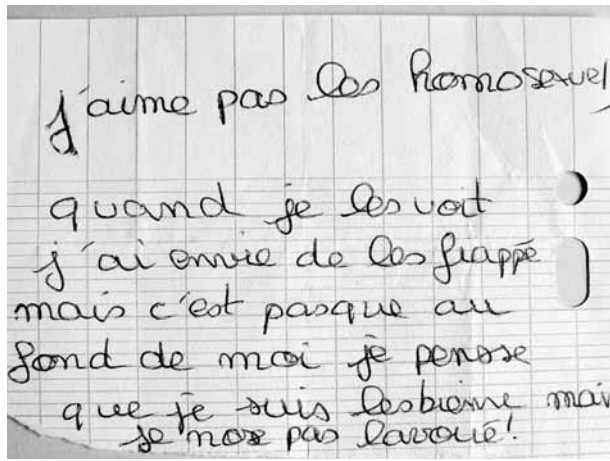 j'aime pas les homosexuel
quand je les voit
j'ai envie de les frappé
mais c'est pasque au
fond de moi je pensse
que je suis lesbienne mais
je nose pas lavoué!